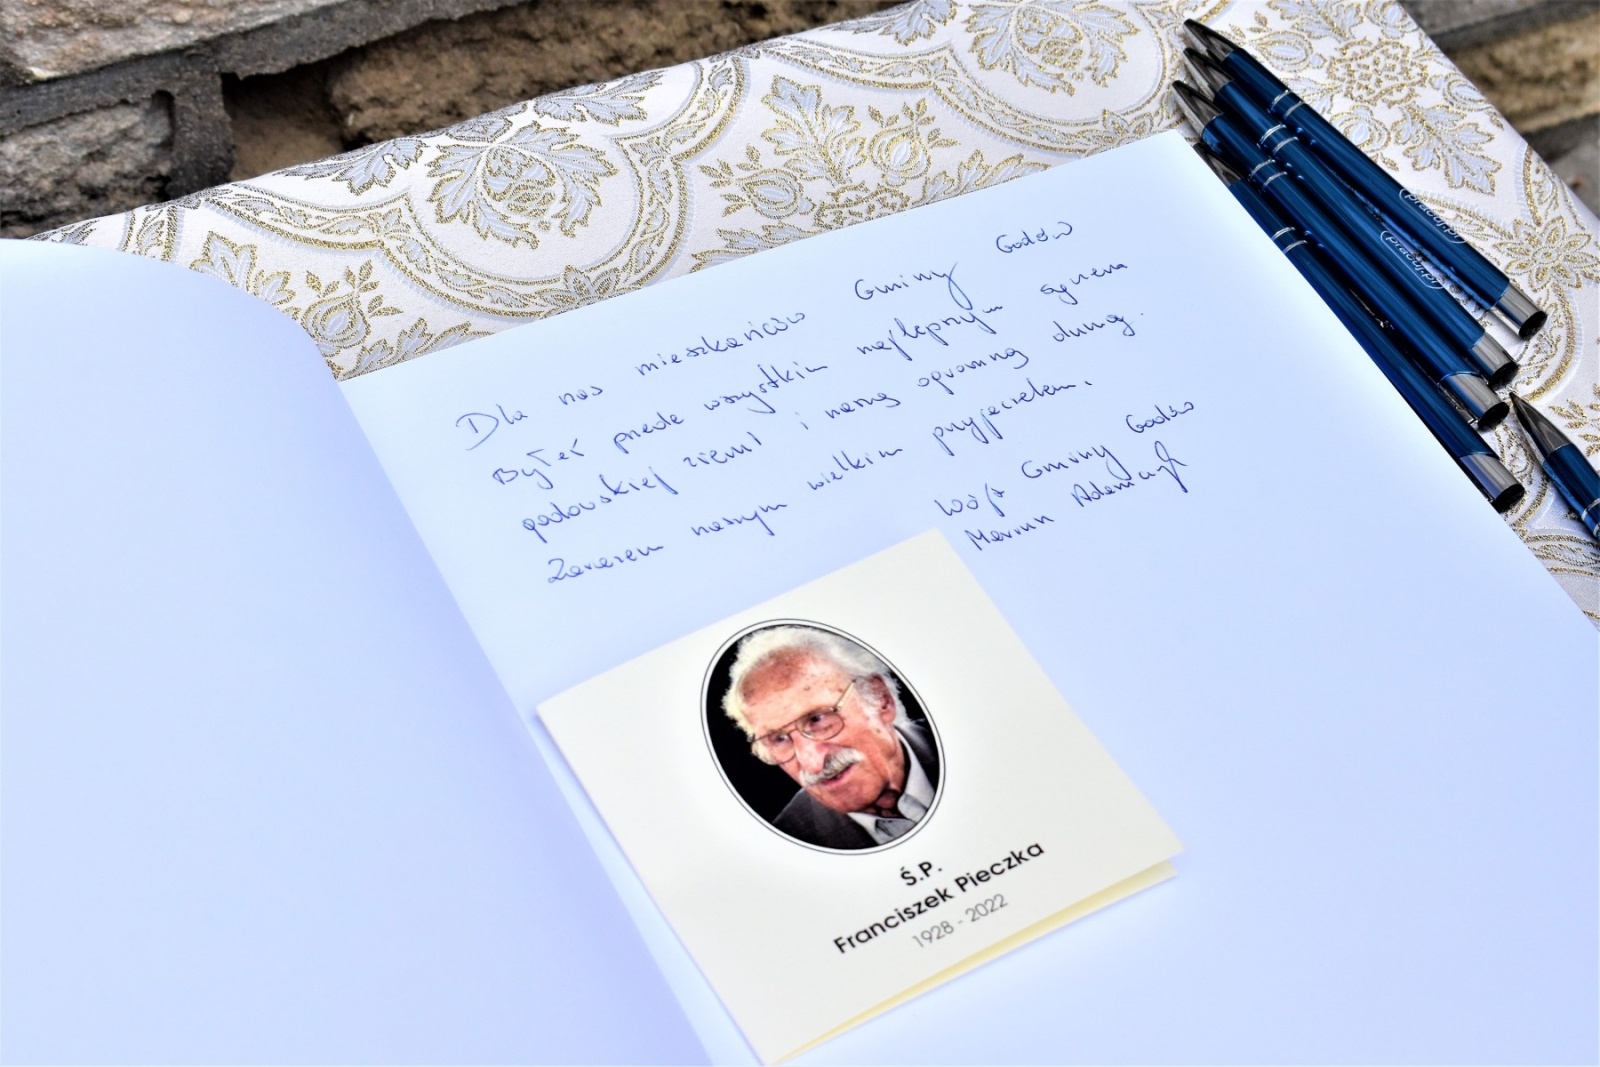 Dla nas mieszkańców Gminy Godów
Byłeś przede wszystkim najlepszym synem
godowskiej ziemi i naszą ogromną dumą.
Zarazem naszym wielkim przyjacielem.
Wójt Gminy Godów
Marian Adamczyk
Ś.P.
Franciszek Pieczka
1928 - 2022
pracuj.pl
pracuj.pl